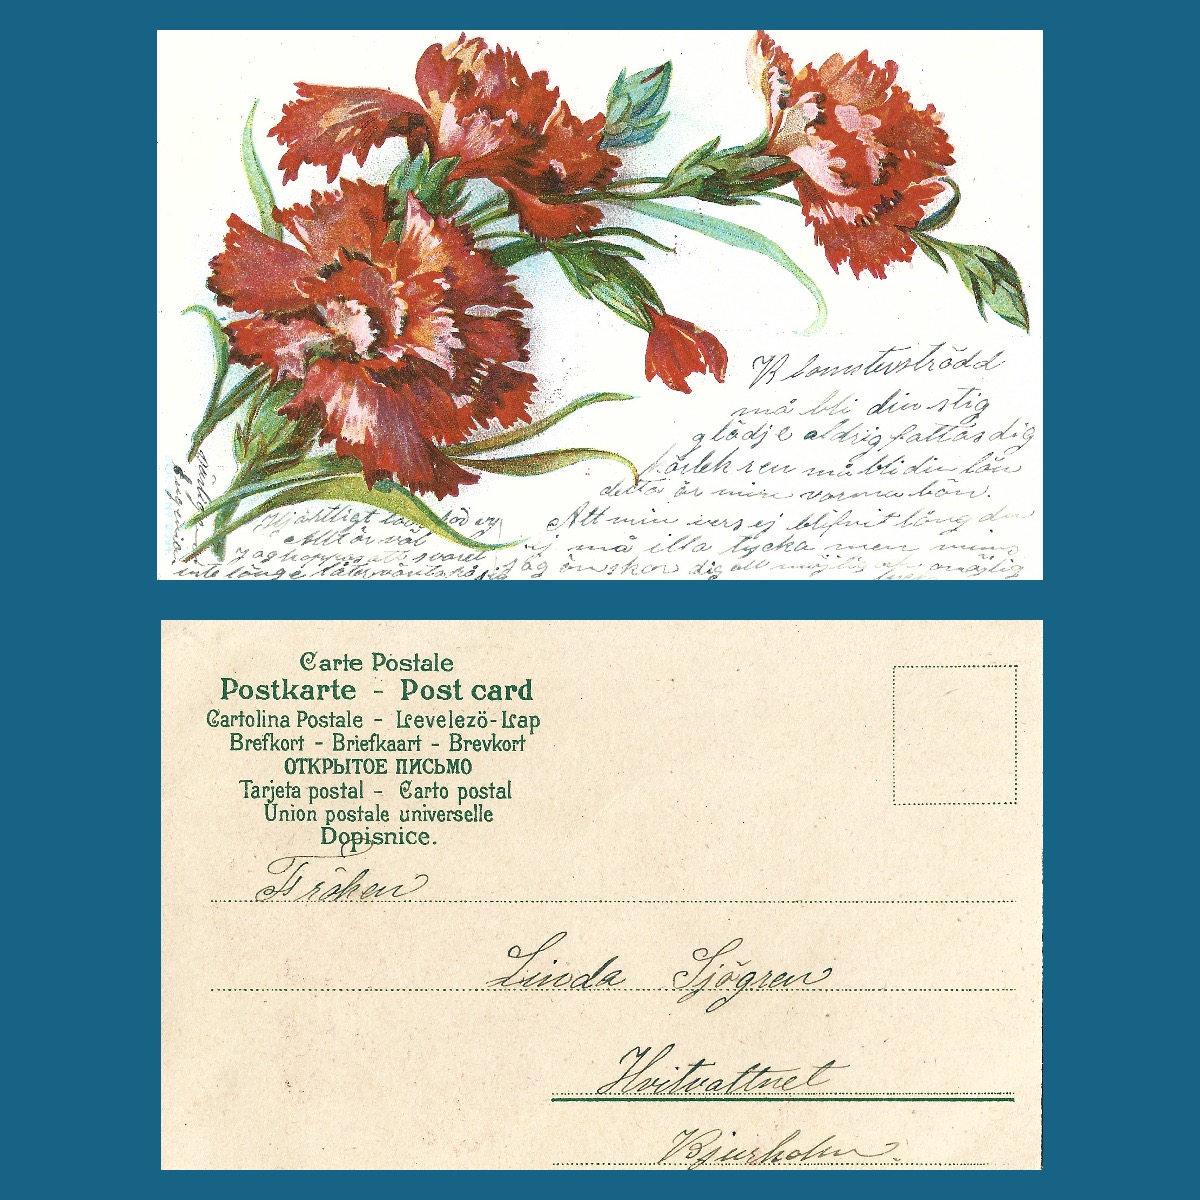 Blomsterströdd
må bli din stig
glädje aldrig fattas dig
kärleken må bli din lön
detta är min varma bön.
Att min vers ej blifvit lång du
ej må illa tycka men mins
jag önskar dig allt möjligt
Hjärtligt
Allt är väl
Jag hoppas att svaret
inte länge låter vänta på sig
vännen
Eugenia
Carte Postale
Postkarte - Post card
Cartolina Postale - Levelező-Lap
Brefkort - Briefkaart - Brevkort
ОТКРЫТОЕ ПИСЬМО
Tarjeta postal - Carto postal
Union postale universelle
Dopisnice.
Fröken
Linda Sjögren
Hvitvattnet
Bjurholm.